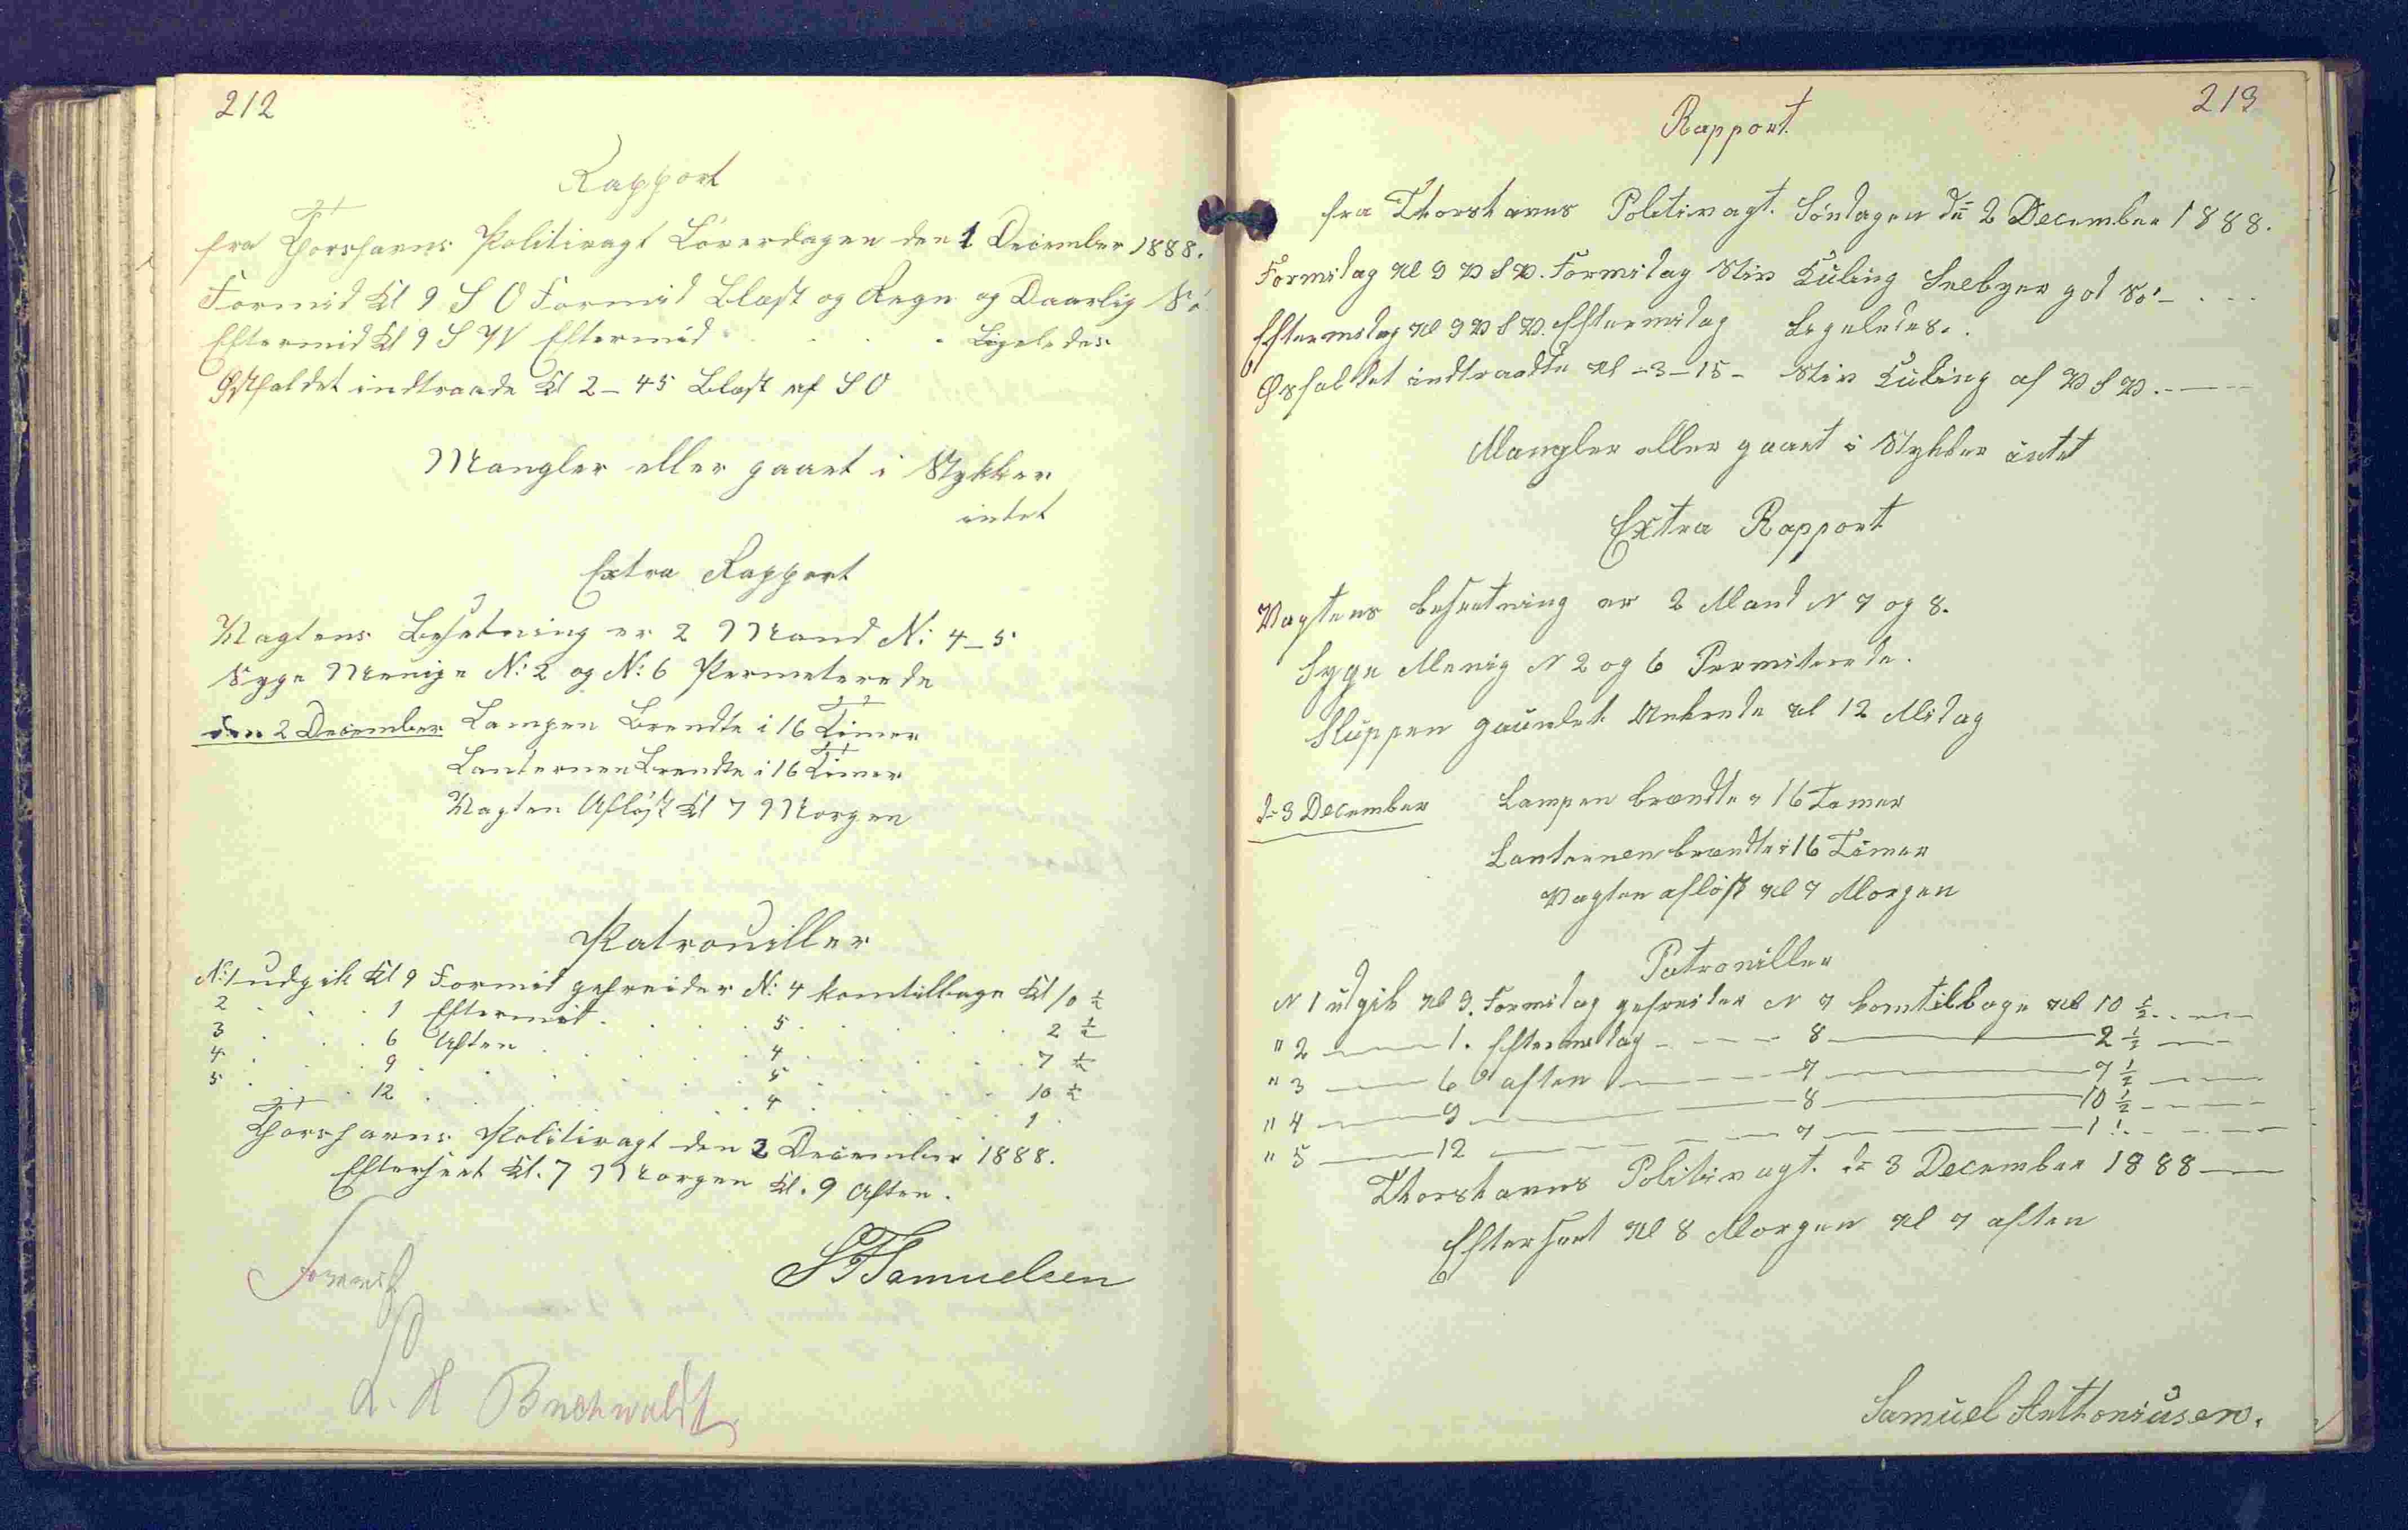 212
Rapport
fra Thorshavns Politivagt Löverdagen den 1 December 1888.
Formid Kl 9 S O Formid Blæst og Regn og Daarlig Sö
Eftermid Kl 9 S W Eftermid . . . . Ligeledes
Østfaldet indtraade Kl 2-45 Blæst af S O
Mangler eller gaaet i Stykker
intet
Extra Rapport
Vagtens Besetning er 2 Mand N: 4-5
Syge Menige N: 2 og N: 6 Permeterede
den 2 December Lampen Brendte i 16 Timer
Lanternen Brendte i 16 Timer
Vagten Aflöst Kl 7 Morgen
Patrouiller
N: 1 udgik Kl 9 Formid gefreider N: 4 komtilbage Kl 10 ½
2 . . . 1 Eftermid . . . . 5 . . . . . 2 ½
3 . . . 6 Aften . . . . . 4 . . . . . 7 ½
4 . . . 9 . . . . . . 5 . . . . . 10 ½
5 . . . 12 . . . . . . 4 . . . . . 1
Thorshavns Politivagt den 2 December 1888.
Efterseet Kl. 7 Morgen Kl. 9 Aften.
S F Samuelsen
L. H Buchwaldt
213
Rapport
fra Thorshavns Politivagt. Söndagen dn 2 December 1888.
Formidag Kl 9 V S V. Formidag Stiv Kuling Sneebyer god Sö - . . .
Eftermidag Kl 9 V S V. Eftermidag Ligeledes. .
Øsfaldet indtraadte Kl - 3 - 15 - Stiv Kuling af V S V. - —
Mangler eller gaaet i Stykker intet
Extra Rapport
Vagtens besætning er 2 Mand N 7 og 8.
Syge Menig N 2 og 6 Permiterede.
Sluppen Ankrede Kl 12 Midag
dn 3 December Lampen brændte i 16 Timer
Lanternen brændte i 16 Timer
Vagten aflöst Kl 7 Morgen
Patrouiller
N 1 udgik Kl 9. Formidag gefreider N 7 komtilbage Kl 10 ½ . . —
" 2 —— 1. Eftermidag - - - - 8 —— 2 ½ —
" 3 —— 6 aften —— 7 —— 7 ½ — —
" 4 —— 9 —— 8 —— 10 ½ - — —
" 5 —— 12 —— 7 —— 1 ! . - — —
Thorshavns Politivagt. dn 3 December 1888 —
Efterseet Kl 8 Morgen Kl 7 aften
Samuel Anthoniusen.